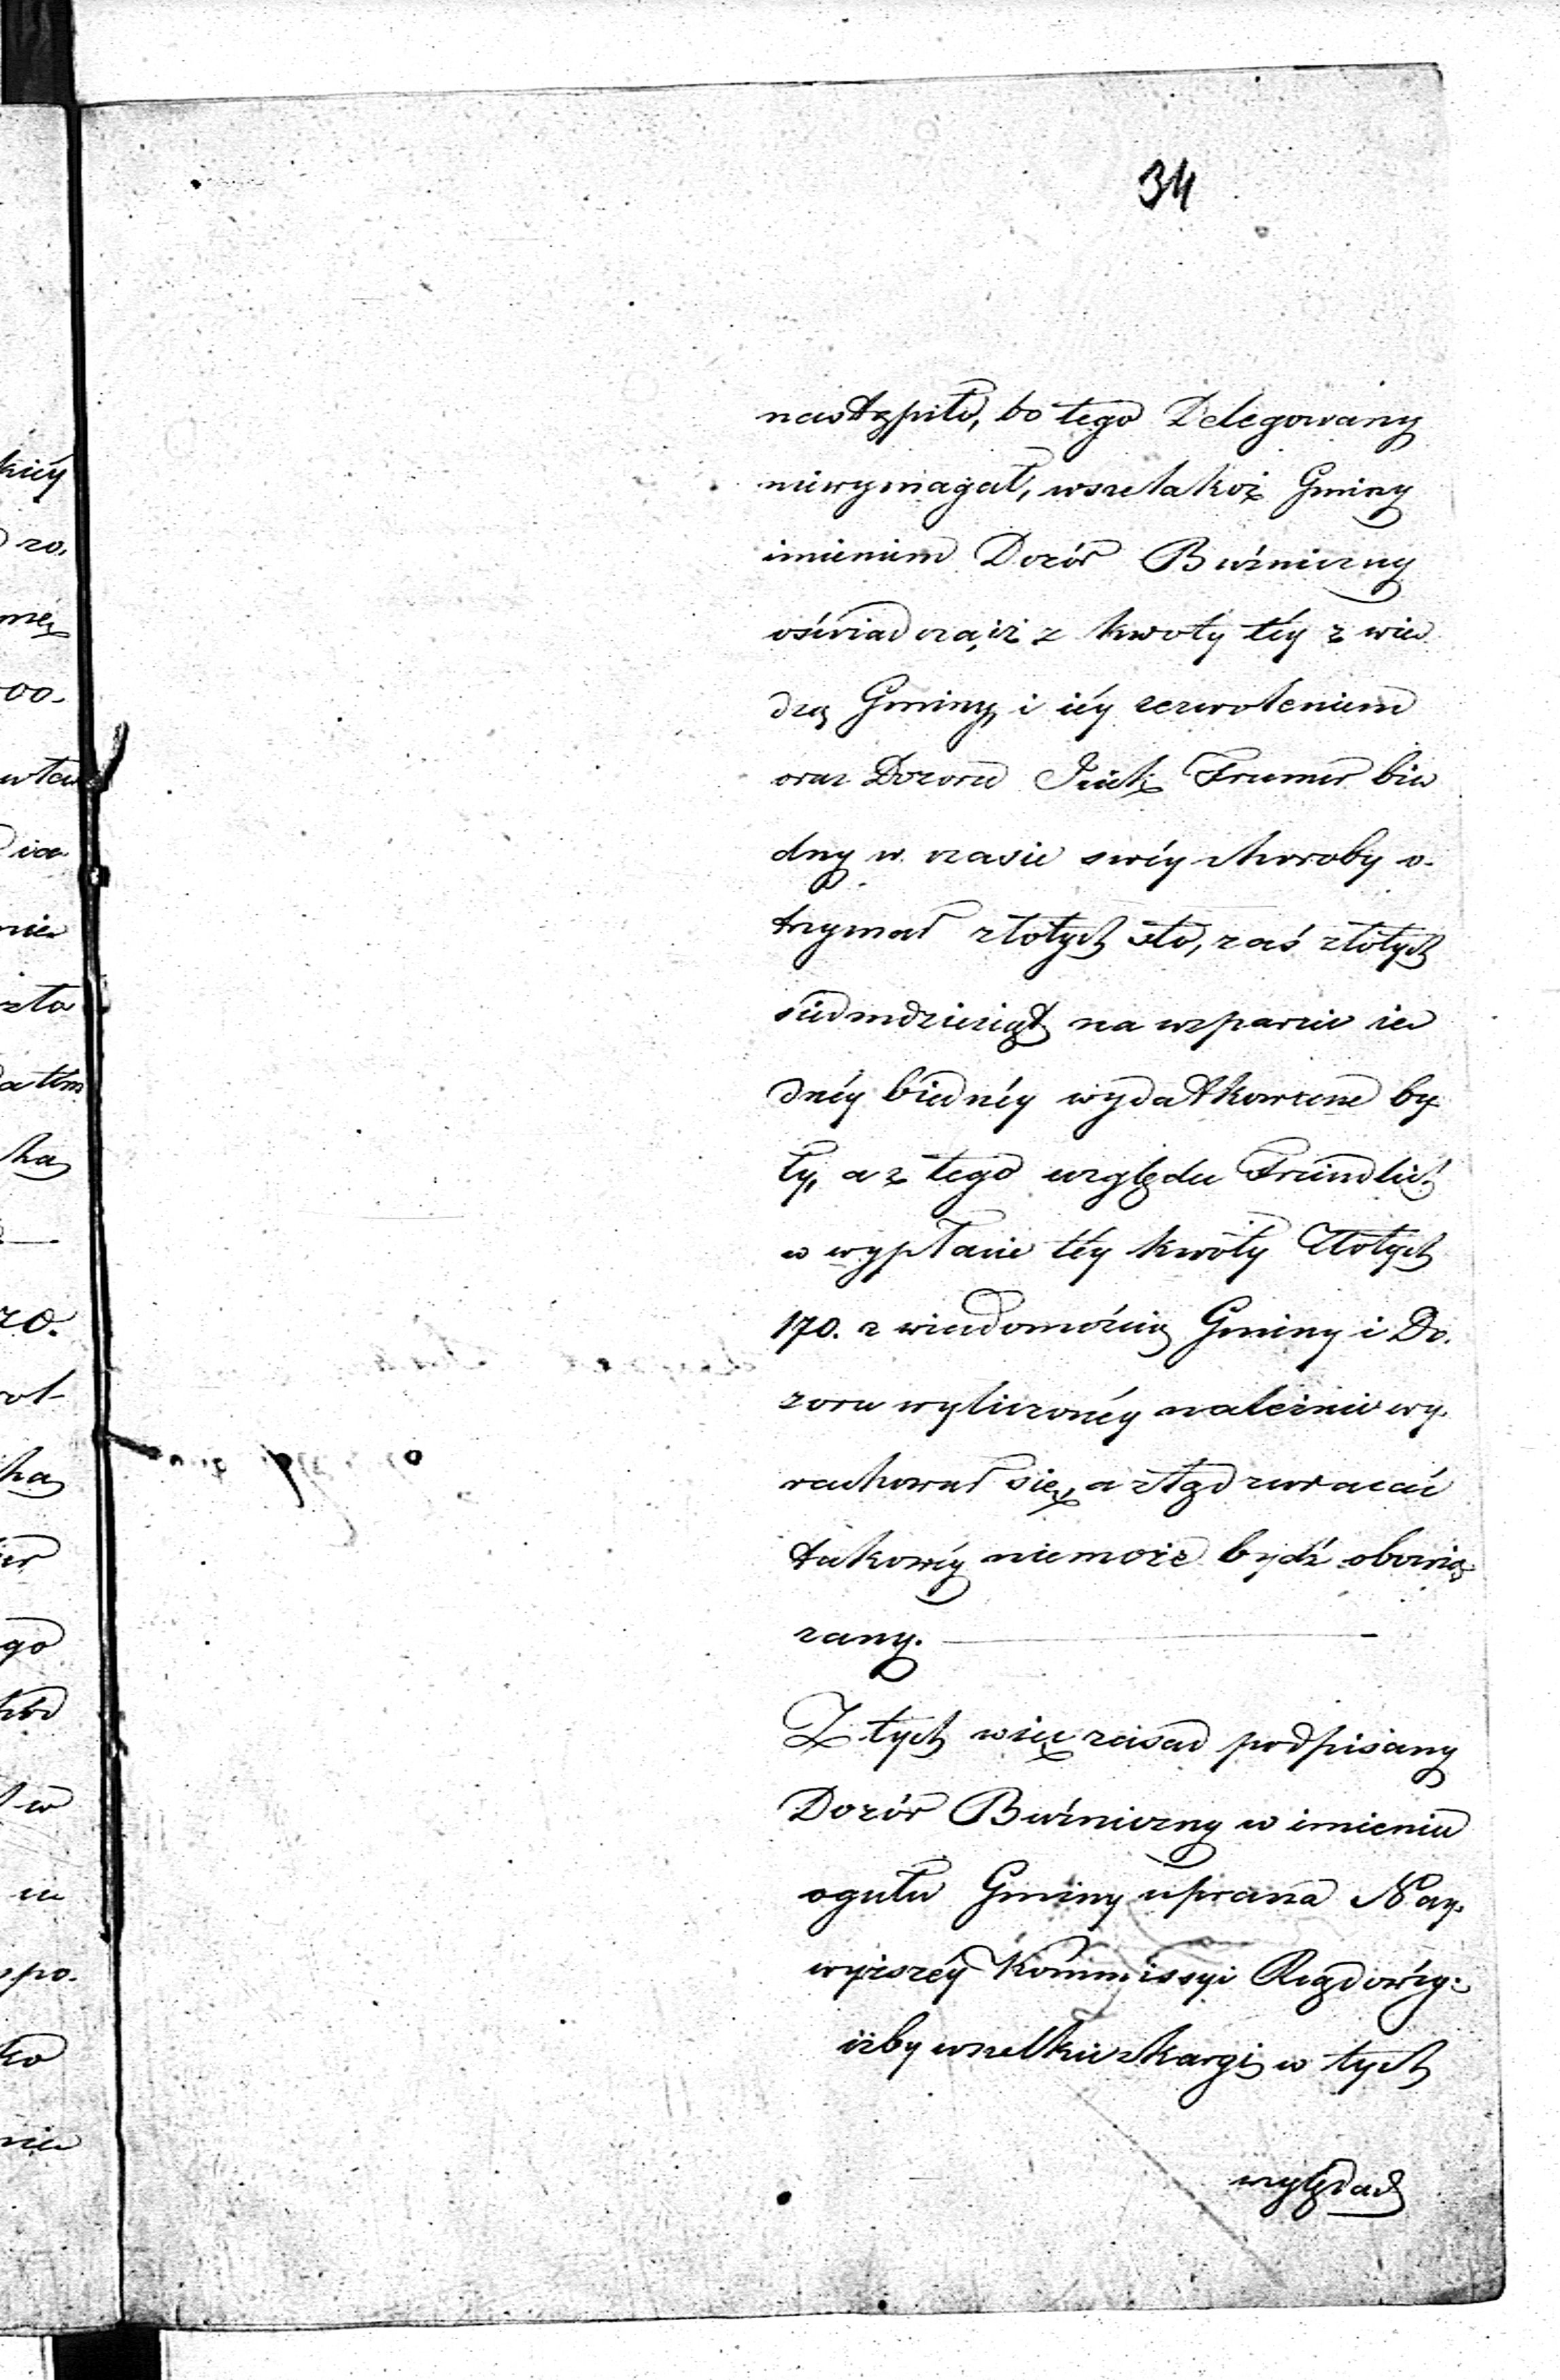 34
nastąpiło, bo tego Delegowany
niewymagał, wszelakoż Gminy
imieniem Dozór Bóźniczny
oświadcza, iż z kwoty téy z wie
dzą Gminy i iéy zezwoleniem
oraz Dozoru Icek Frumer bie
dny w czasie swéy choroby o-
trzymał złotych sto, zaś złotych
siedmdziesiąt na wsparcie ie
dnéy biednéy wydatkowane by
ły, a z tego względu Freindlich
w wypłacie téy kwoty Złotych
170. z wiadomością Gminy i Do-
zoru wyliczonéy należnie wy-
rachował się, a ztąd zwracać
takowéy niemoże bydź obowią
zany.
Z tych więc zasad podpisany
Dozór Bóźniczny w imieniu
ogółu Gminy uprasza Nay-
wyższéy Kommissyi Rządowéy:
iżby wszelkie skargi w tych
względach
kiéy
zo.
mę
00.
nie
zło
ką
zo.
go
w
spo-
nie